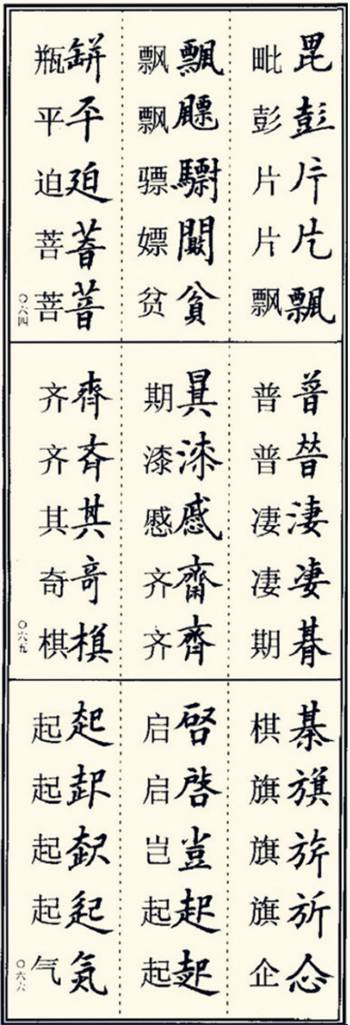 毘彭片片飄
毗彭片片飘
飄貧
飘飘骠嫖贫
缾平廹
瓶平迫菩菩
〇六四
普暜淒凄朞
普普凄凄期
漆慼齋齊
期漆慼齐齐
齊斉其竒
齐齐其奇棋
〇六五
棊旗
棋旗旗旗企
啓豈起起
启启岂起起
起起氣
起起起起气
〇六六